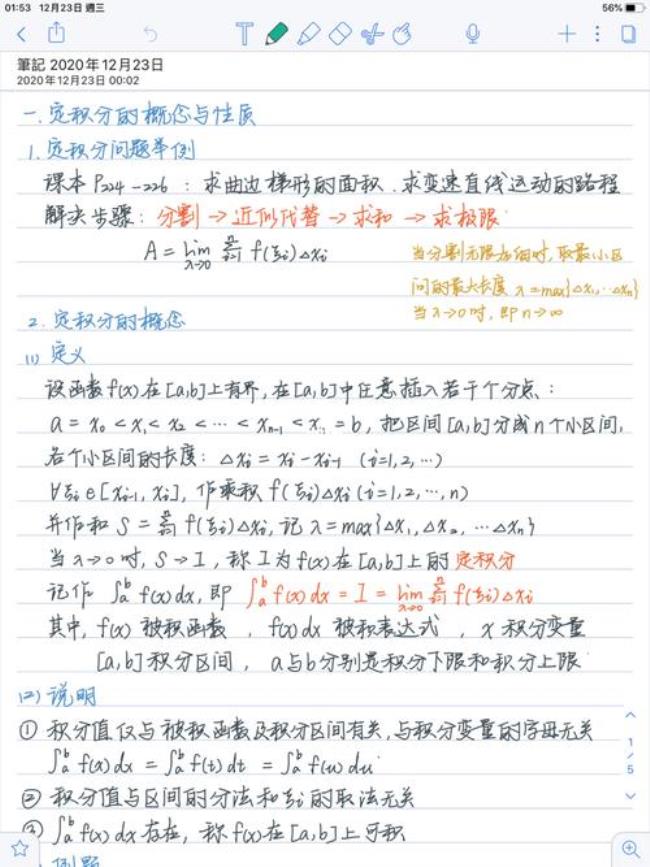 01:53 12月23日 週三
56%
筆記 2020年12月23日
2020年12月23日 00:02
一. 定积分的概念与性质
1. 定积分问题举例
课本 P224-226 : 求曲边梯形的面积. 求变速直线运动的路程
解决步骤: 分割 → 近似代替 → 求和 → 求极限
A = lim λ→0 Σ f(ξi)Δxi
当分割无限加细时, 取最小区
间的最大长度 λ = max{Δx1, … Δxn}
当 λ→0 时, 即 n→∞
2. 定积分的概念
(1) 定义
设函数 f(x) 在 [a,b] 上有界, 在 [a,b] 中任意插入若干个分点:
a = x0 < x1 < x2 < … < xn-1 < xn = b, 把区间 [a,b] 分成 n 个小区间,
各个小区间的长度: Δxi = xi - xi-1 (i=1,2,…)
∀ξi∈[xi-1, xi], 作乘积 f(ξi)Δxi (i=1,2,…,n)
并作和 S = Σ f(ξi)Δxi, 记 λ = max{Δx1, Δx2, … Δxn}
当 λ→0 时, S→I, 称 I 为 f(x) 在 [a,b] 上的 定积分
记作 ∫ₐᵇ f(x)dx, 即 ∫ₐᵇ f(x)dx = I = lim λ→0 Σ f(ξi)Δxi
其中, f(x) 被积函数, f(x)dx 被积表达式, x 积分变量
[a,b] 积分区间, a与b分别是积分下限和积分上限
(2) 说明
① 积分值仅与被积函数及积分区间有关, 与积分变量的字母无关
∫ₐᵇ f(x)dx = ∫ₐᵇ f(t)dt = ∫ₐᵇ f(u)du
1/5
② 积分值与区间的分法和 ξi 的取法无关
③ ∫ₐᵇ f(x)dx 存在, 称 f(x) 在 [a,b] 上可积
例题